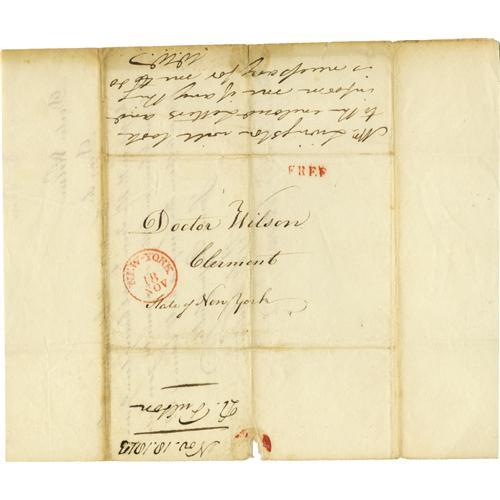 Mr. Livingston will look
to the enclosed Letters and
inform me if any thing
is necessary for me to do
W.W.
FREE
Doctor Wilson
Clermont
State of New York
NEW-YORK
18
NOV
R. Fulton
Nov. 18. 1813